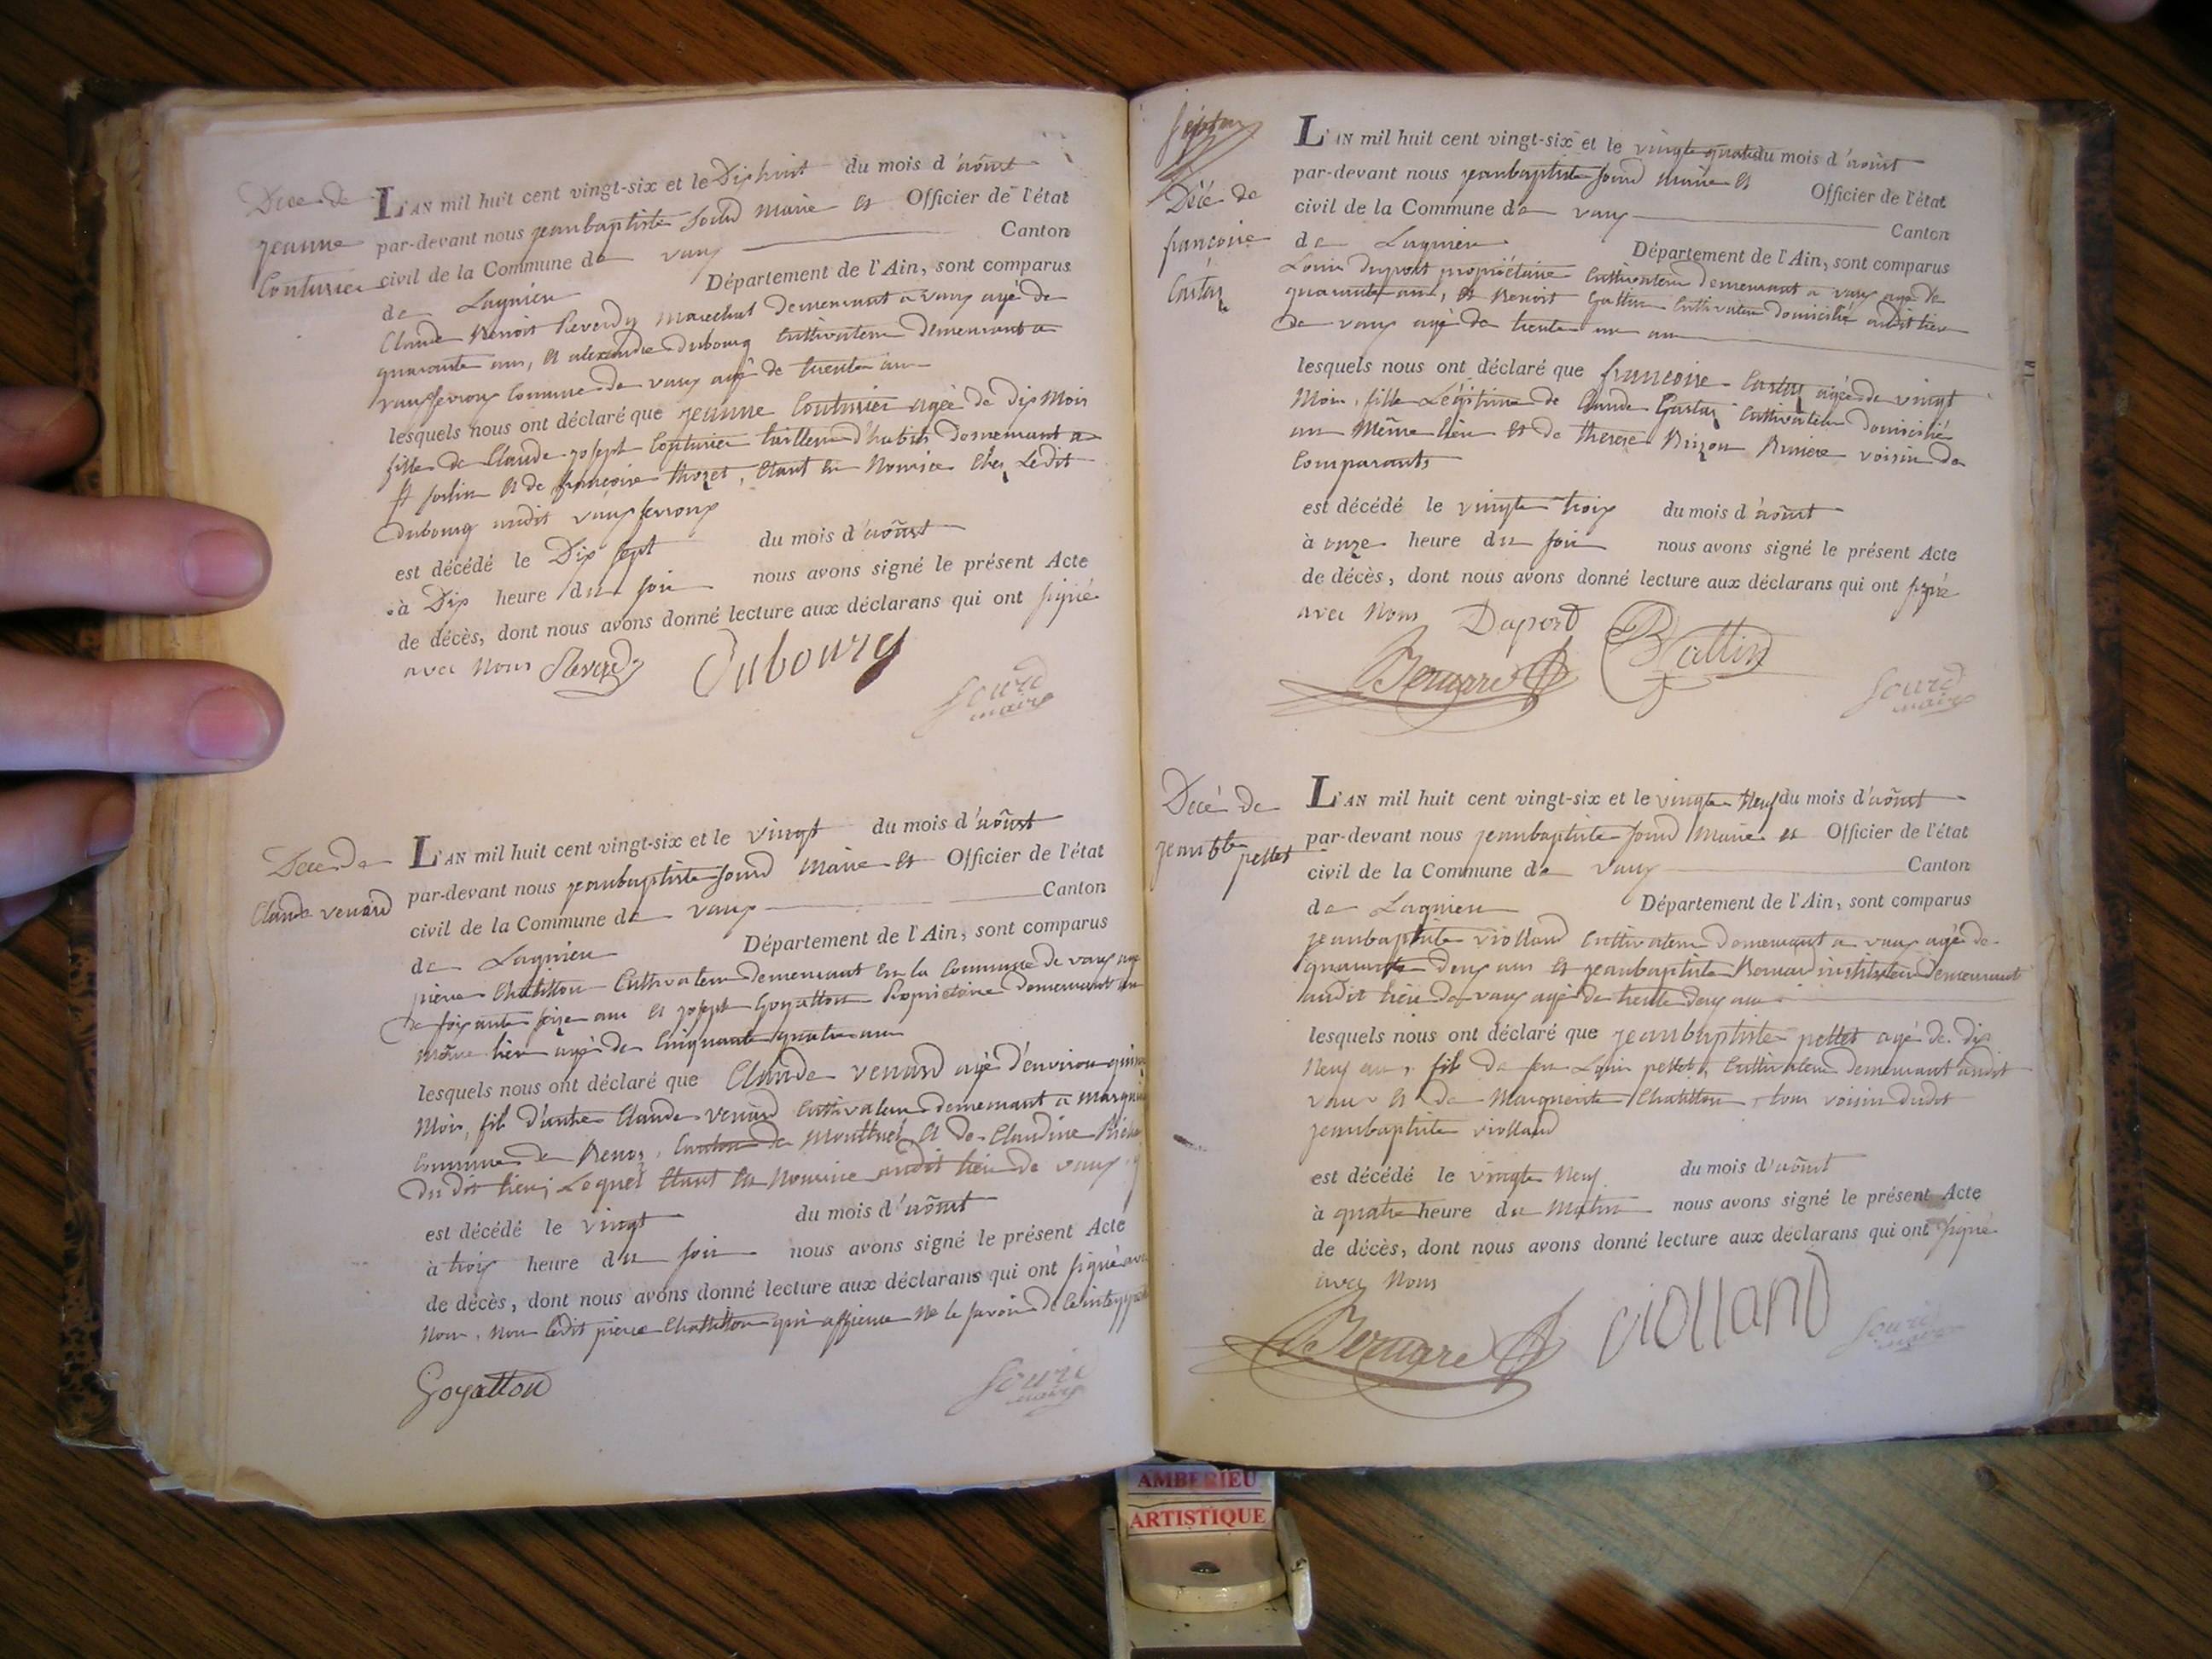 Décé de
jeanne
Couturier
L'AN mil huit cent vingt-six et le Dix huit du mois d'aôust
par-devant nous jeanbaptiste Sourd Maire et Officier de l'état
civil de la Commune de vaux Canton
de Lagnieu Département de l'Ain, sont comparus
Claude Benoit Reverdy Marechal demeurant a vaux agé de
quarante ans, et alexandre Dubourg Cultivateur demeurant a
vauxfevroux Commune de vaux agé de trente ans
lesquels nous ont déclaré que jeanne Couturier agée de dix Mois
fille de Claude joseph Couturier tailleur d'habits demeurant a
St Sorlin et de françoise thozet, Etant En Nourice Chez Ledit
Dubourg audit vauxfevroux
est décédé le Dix Sept du mois d'aôust
à Dix heure du soir nous avons signé le présent Acte
de décès, dont nous avons donné lecture aux déclarans qui ont signé
avec Nous Reverdy Dubourg
Sourd
maire
Décé de
Claude venard
L'AN mil huit cent vingt-six et le vingt du mois d'aôust
par-devant nous jeanbaptiste Sourd Maire et Officier de l'état
civil de la Commune de vaux Canton
de Lagnieu Département de l'Ain, sont comparus
pierre Chatillon Cultivateur demeurant En la Commune de vaux agé
De soixante seize ans et joseph Goyatton Propriétaire demeurant au
même lieu agé de Cinquante quatre ans
lesquels nous ont déclaré que Claude venard agé d'environ quinze
Mois, fils d'autre Claude venard Cultivateur demeurant a
Commune de Canton de Montluel et de Claudine
du dit lieu; Lequel Etant En Nourice audit lieu de vaux
est décédé le vingt du mois d'aôust
à trois heure du soir nous avons signé le présent Acte
de décès, dont nous avons donné lecture aux déclarans qui ont signé avec
Nous, Non Ledit pierre Chatillon qui affirme Ne le savoir de ce
Goyatton
Sourd
maire
Décé de
francoise
L'AN mil huit cent vingt-six et le vingte quatre du mois d'aôust
par-devant nous jeanbaptiste Sourd Maire et Officier de l'état
civil de la Commune de vaux Canton
de Lagnieu Département de l'Ain, sont comparus
Louis Duport propriétaire Cultivateur demeurant a vaux agé de
quarante ans, et Benoit Gattin Cultivateur domicilié audit lieu
De vaux agé de trente un ans
lesquels nous ont déclaré que francoise agée de vingt
Mois, fille Légitime de Claude Cultivateur domicilié
au Même lieu et de therese voisin de
Comparants
est décédé le vingte trois du mois d'aôust
à onze heure du soir nous avons signé le présent Acte
de décès, dont nous avons donné lecture aux déclarans qui ont signé
avec Nous Duport
Sourd
maire
Décé de
jean bte pellet
L'AN mil huit cent vingt-six et le vingte Neuf du mois d'aôust
par-devant nous jeanbaptiste Sourd Maire et Officier de l'état
civil de la Commune de vaux Canton
de Lagnieu Département de l'Ain, sont comparus
jeanbaptiste violland Cultivateur demeurant a vaux agé de
quarante deux ans et jeanbaptiste instituteur demeurant
audit lieu de vaux agé de trente deux ans
lesquels nous ont déclaré que jeanbaptiste pellet agé de dix
Neuf ans, fils de feu Louis pellet, Cultivateur demeurant audit
vaux et de Marguerite Chatillon, tous voisin dudit
jeanbaptiste violland
est décédé le vingte Neuf du mois d'aôust
à quatre heure du Matin nous avons signé le présent Acte
de décès, dont nous avons donné lecture aux déclarans qui ont signé
avec Nous
violland
Sourd
maire
AMBERIEU
ARTISTIQUE